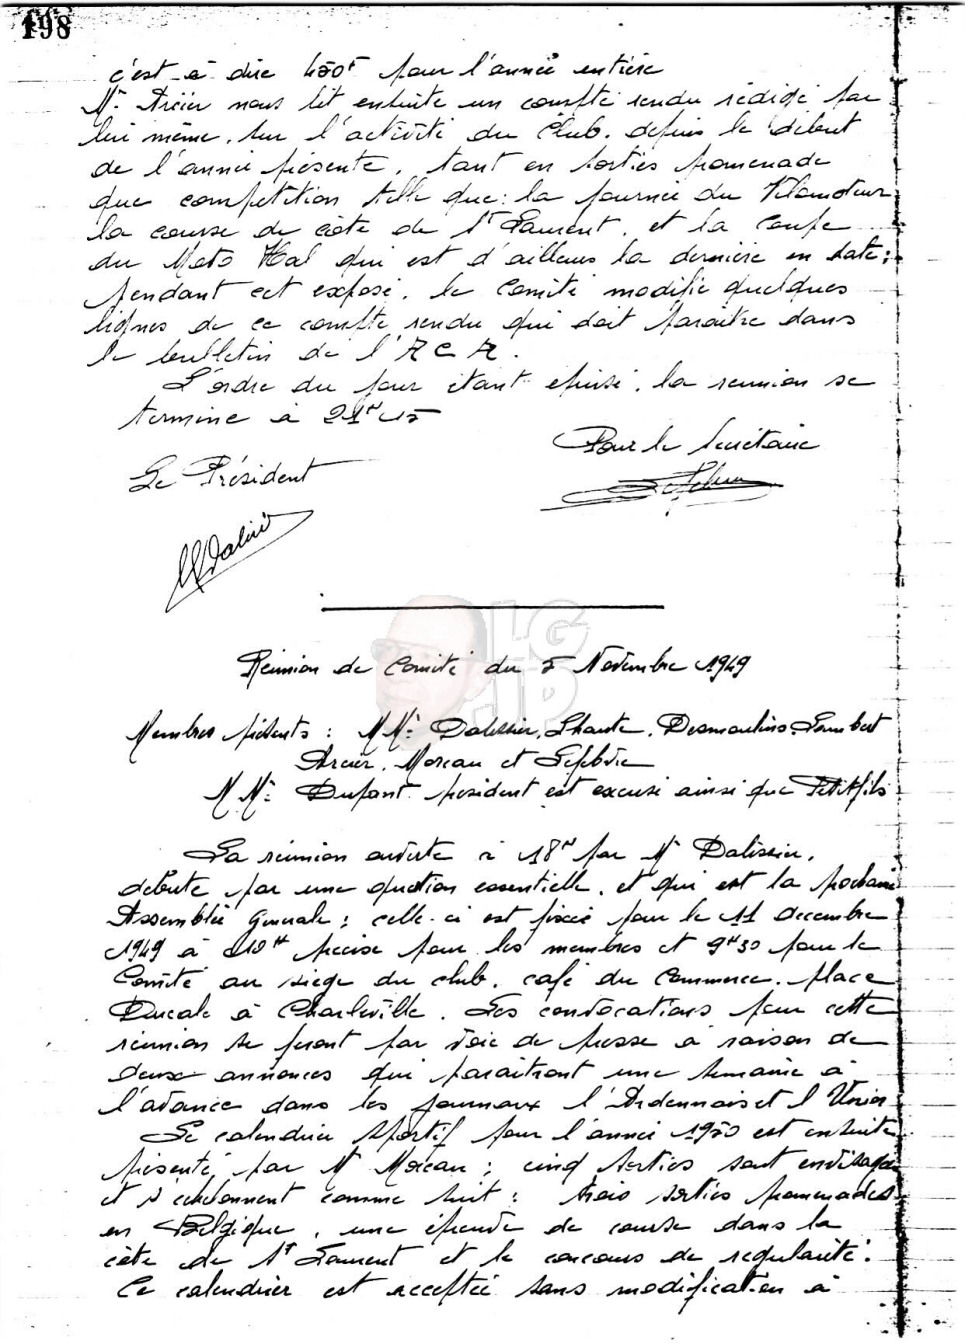 198
c'est à dire 450f pour l'année entière
Mr Arcier nous lit ensuite un compte rendu rédigé par
lui même, sur l'activité du Club. depuis le début
de l'année présente, tant en sorties promenade
que compétition telle que: la journée du Vélomoteur
la course de côte de St Laurent, et la Coupe
du Moto Hal qui est d'ailleurs la dernière en date;
pendant cet exposé, le Comité modifie quelques
lignes de ce compte rendu qui doit paraître dans
le bulletin de l'A C A.
L'ordre du jour étant épuisé, la réunion se
termine à 21H 45
Pour le Secrétaire
Le Président
LG
JD
Réunion de Comité du 5 Novembre 1949
Membres présents: MMr Dalissier, Lhoute, Desmoulins, Lambert
Arcier, Moreau et Lefebvre
MMr Dupont président est excusé ainsi que Petitfils
La réunion ouverte à 18H par Mr Dalissier,
débute par une question essentielle, et qui est la prochaine
Assemblée Générale; celle-ci est fixée pour le 11 décembre
1949 à 10H précise pour les membres et 9H30 pour le
Comité au siège du club, café du Commerce, place
Ducale à Charleville. Les convocations pour cette
réunion se feront par voie de presse à raison de
deux annonces qui paraîtront une semaine à
l'avance dans les journaux l'Ardennais et l'Union
Le calendrier sportif pour l'année 1950 est ensuite
présenté par Mr Moreau; cinq sorties sont envisagées
et s'échelonnent comme suit: trois sorties promenades
en Belgique, une épreuve de course dans la
côte de St Laurent et le concours de régularité.
Ce calendrier est accepté sans modification à